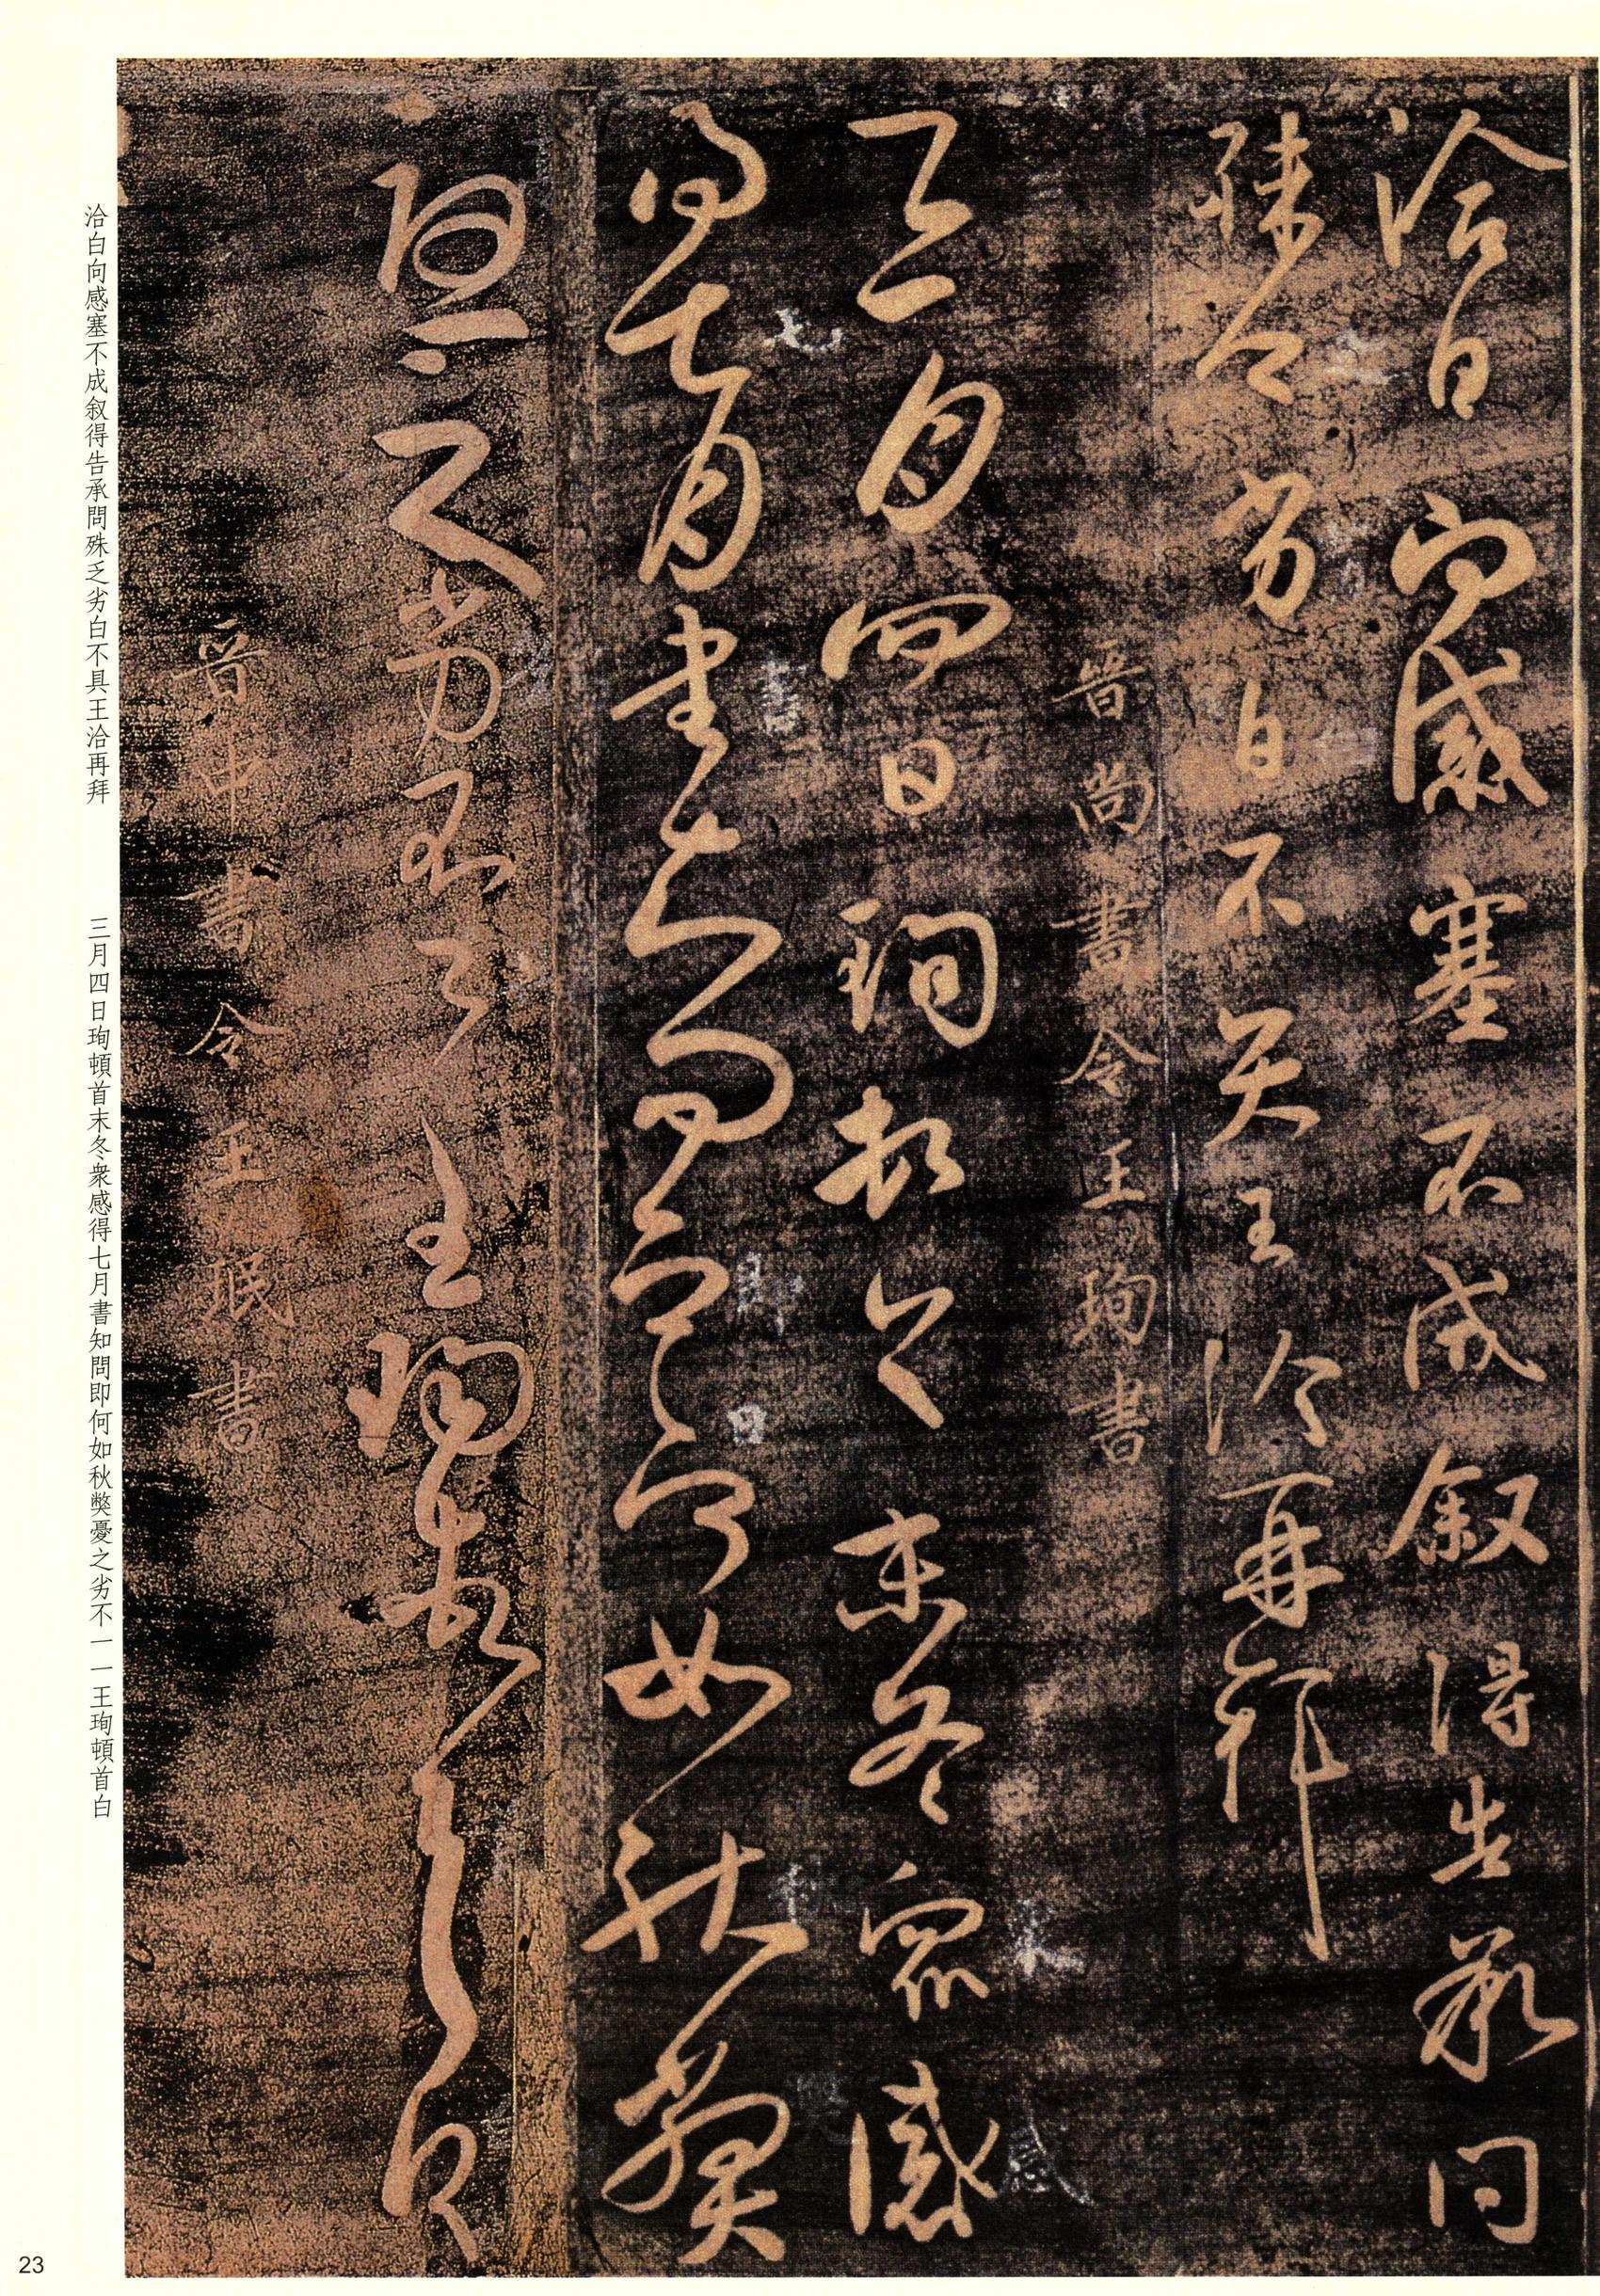 洽白向感塞不成叙得告承問
殊乏劣白不具王洽再拜
晉尚書令王珣書
三月四日珣頓首末冬衆感
得七月書知問即何如秋弊
憂之劣不一一王珣頓首白
晉中書令王珉書
七
書
即
日
秋
末
感
洽白向感塞不成叙得告承問殊乏劣白不具王洽再拜
三月四日珣頓首末冬衆感得七月書知問即何如秋弊憂之劣不一一王珣頓首白
23